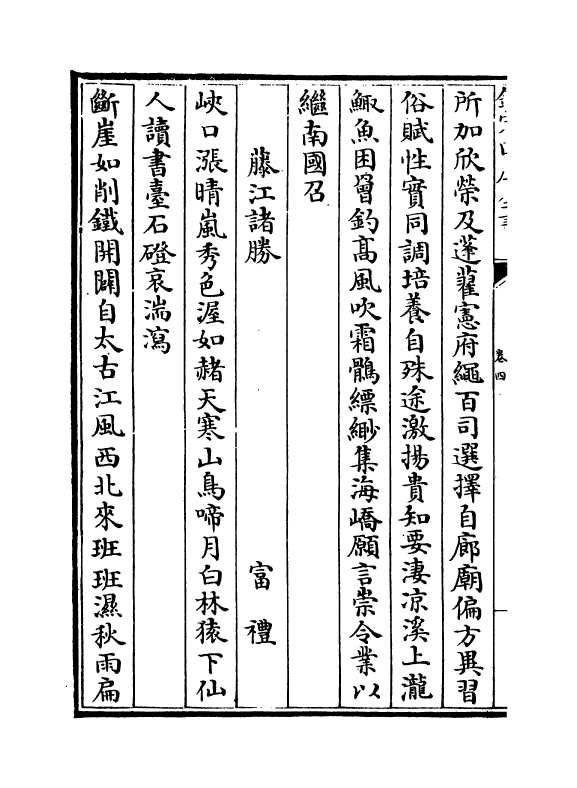 所加欣榮及蓬藋憲府繩百司選擇自廊廟偏方異習
俗賦性實同調培養自殊途激揚貴知要淒凉溪上瀧
鯫魚困罾釣髙風吹霜鶻縹緲集海嶠願言崇令業以
繼南國召
藤江諸勝 富禮
峽口漲晴嵐秀色渥如赭天寒山鳥啼月白林猿下仙
人讀書臺石磴哀湍瀉
斷崖如削鐵開闢自太古江風西北來班班濕秋雨扁
卷四